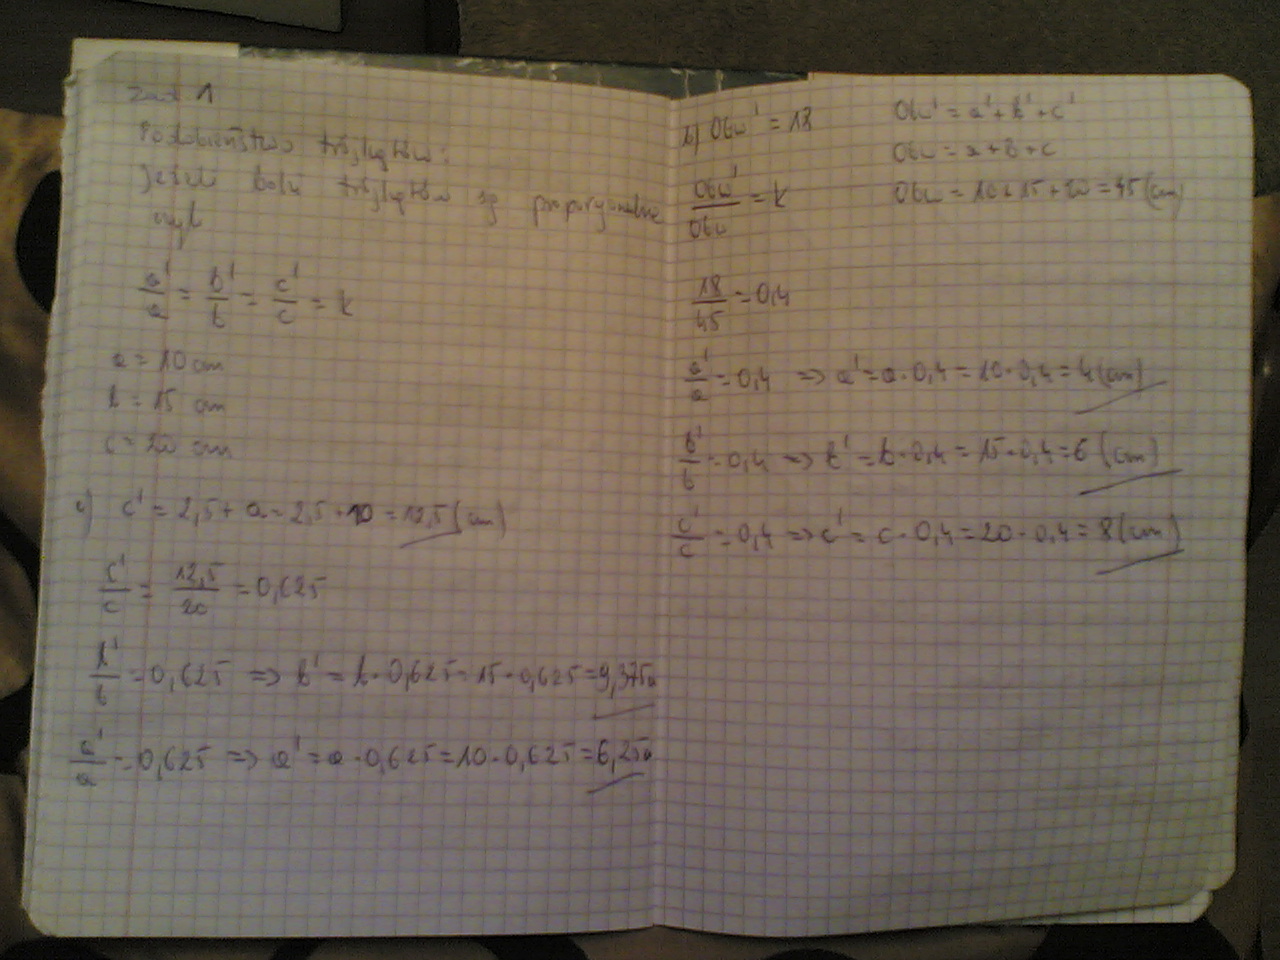 Zad 1
Podobieństwo trójkątów:
Jeżeli boki trójkątów są proporcjonalne
czyli
a'/a = b'/b = c'/c = k
a = 10 cm
b = 15 cm
c = 20 cm
c' = 2,5 + a = 2,5 + 10 = 12,5 (cm)
c'/c = 12,5/20 = 0,625
b'/b = 0,625 => b' = b · 0,625 = 15 · 0,625 = 9,375
a'/a = 0,625 => a' = a · 0,625 = 10 · 0,625 = 6,25
b) Obw' = 18
Obw'/Obw = k
Obw' = a' + b' + c'
Obw = a + b + c
Obw = 10 + 15 + 20 = 45 (cm)
18/45 = 0,4
a'/a = 0,4 => a' = a · 0,4 = 10 · 0,4 = 4 (cm)
b'/b = 0,4 => b' = b · 0,4 = 15 · 0,4 = 6 (cm)
c'/c = 0,4 => c' = c · 0,4 = 20 · 0,4 = 8 (cm)